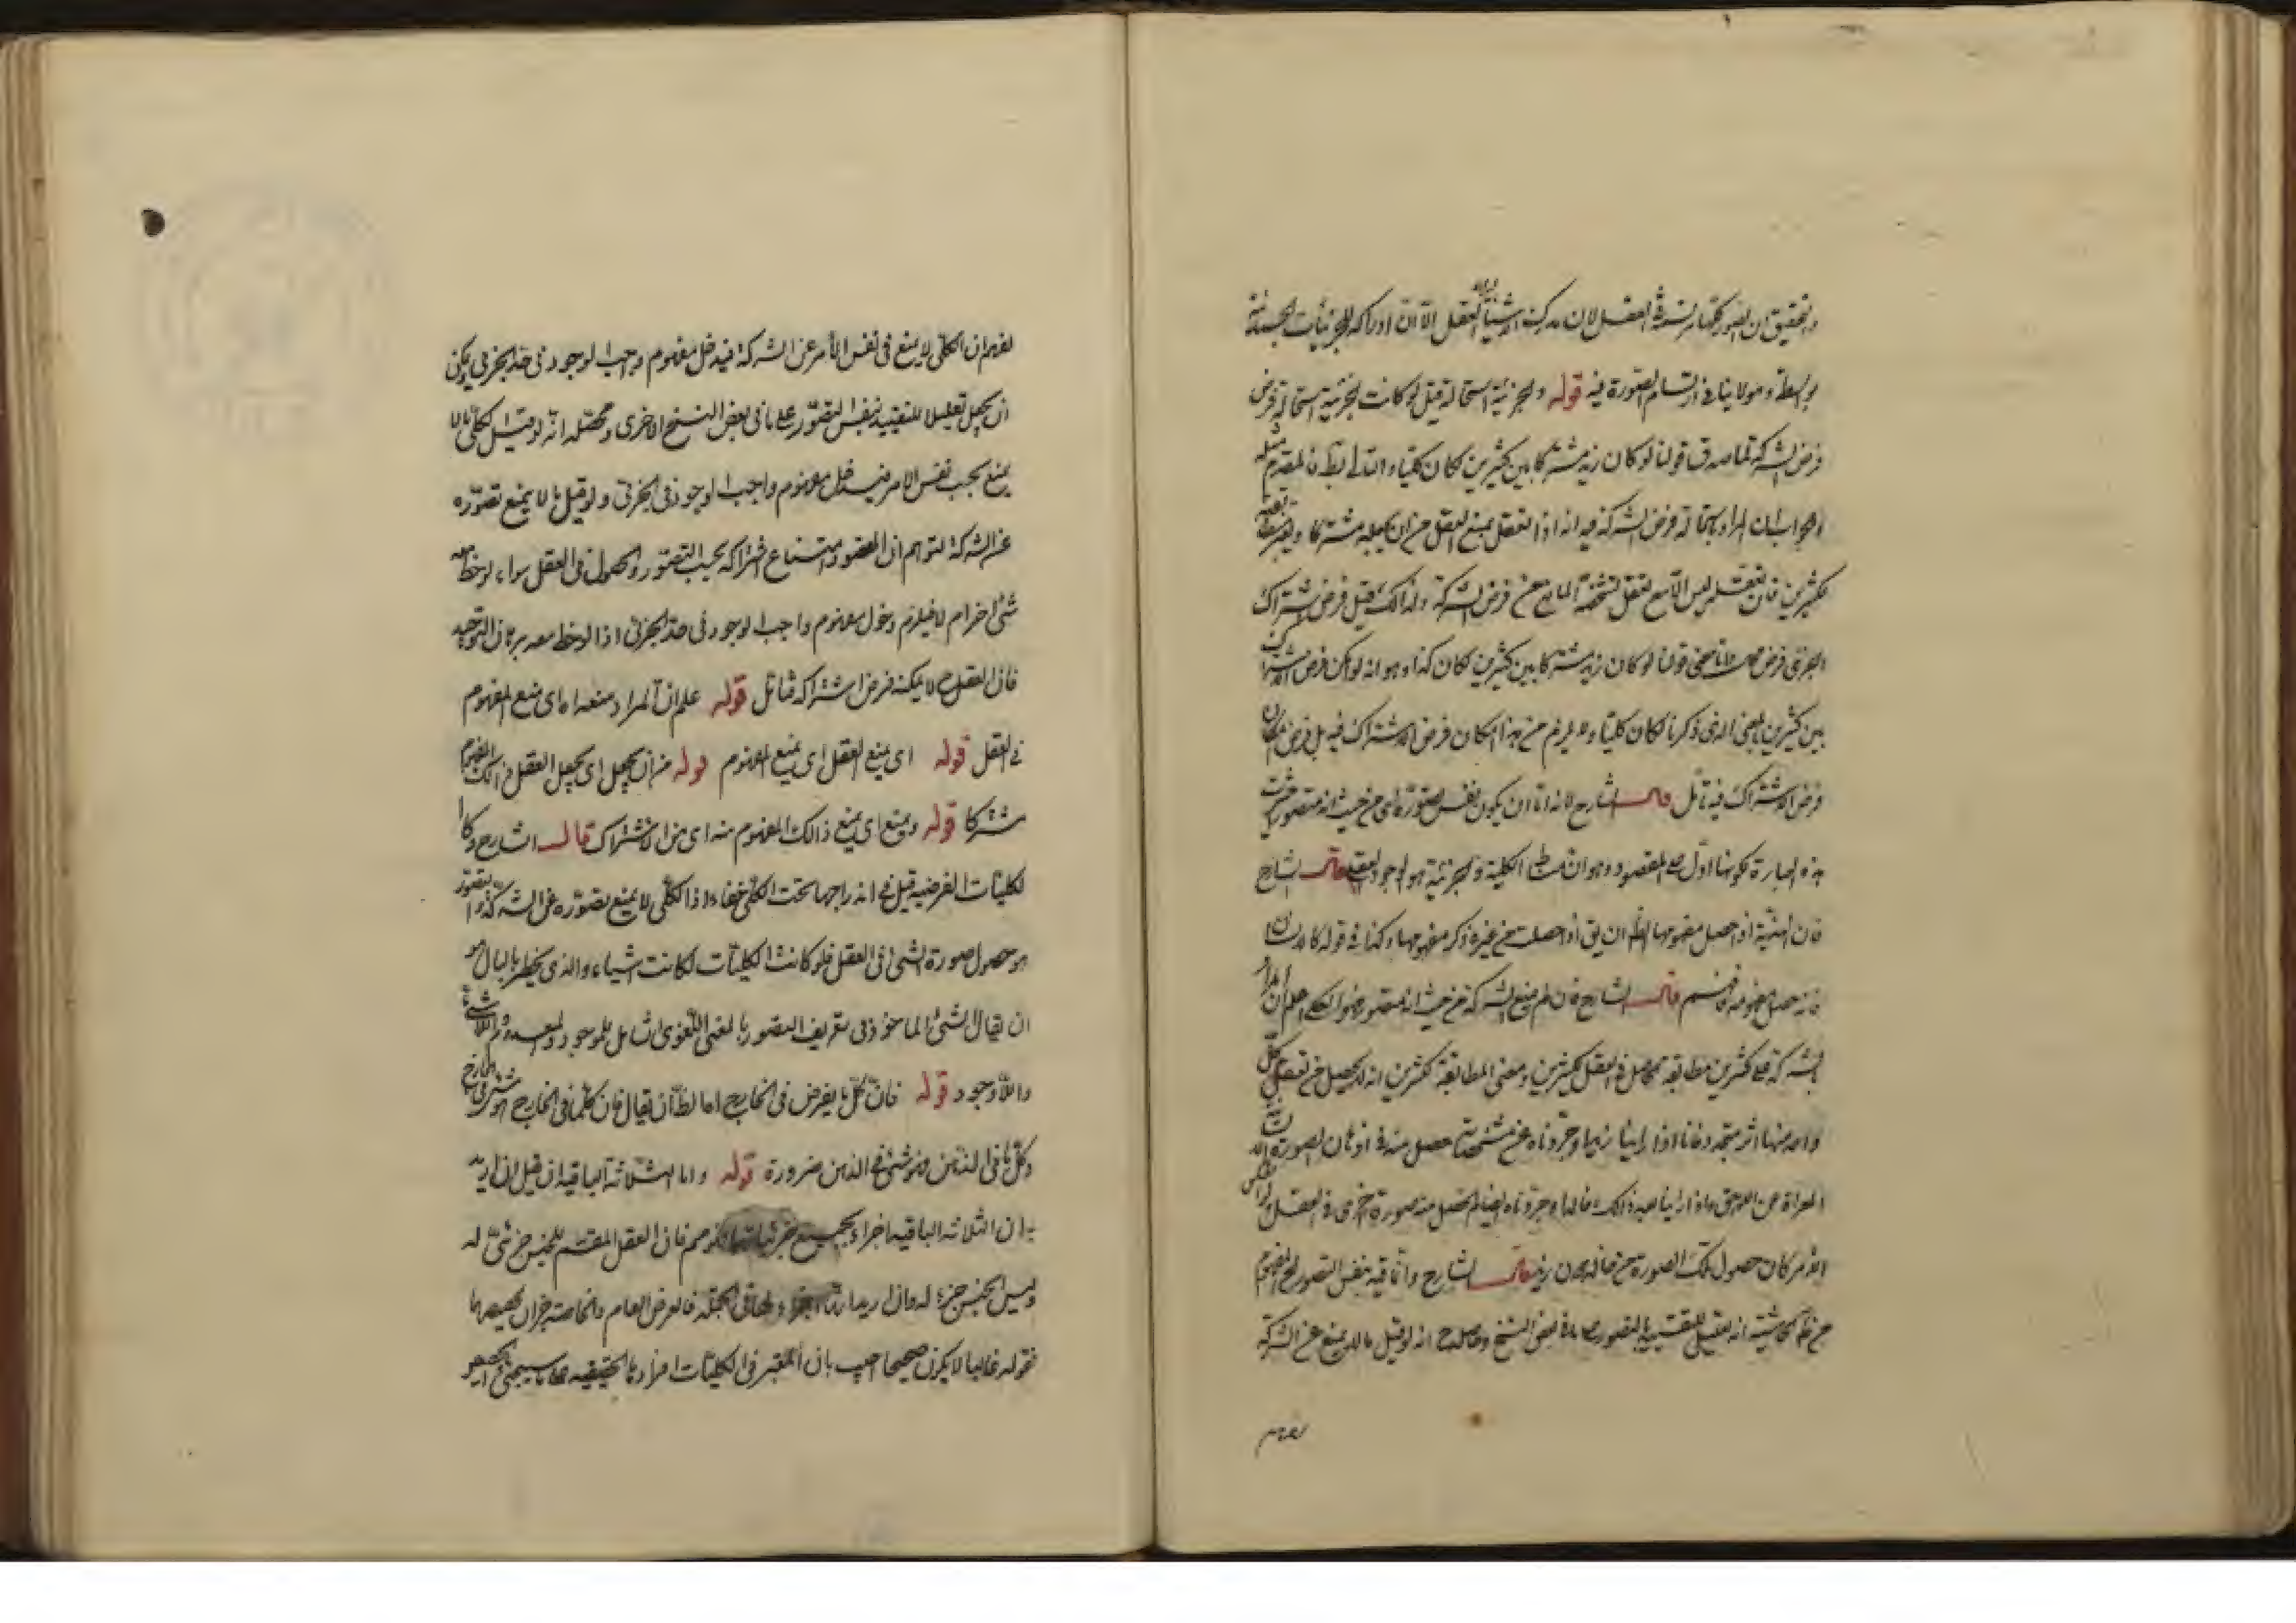 والتحقيق ان الصور كلها مرتسمة فى العقل لان مدرك الاشياء العقل الا ان ادراكه للجزئيات الجسمية
بواسطة وهو لا ينافى ارتسام الصورة فيه قوله والجزئية استحالة قيل لو كانت الجزئية استحالة فرض
فرض الشركة لما صدق قولنا لو كان زيد مشتركا بين كثيرين لكان كليا والتالى بط فالمقدم مثله
والجواب ان المراد باستحالة فرض الشركة فيه انه اذا تعقل يمنع العقل من ان يجعله مشتركا
لكثيرين فان تعقله ليس الا مع تعقل تشخصه المانع من فرض الشركة ولذلك قيل فرض اشتراك
الجزئى فرض قولنا لو كان زيد مشتركا بين كثيرين لكان كذا وهو انه لو امكن فرض اشتراك
بين كثيرين بالمعنى الذى ذكرنا لكان كليا ولا يلزم من هذا امكان فرض الاشتراك فيه بل فرض امكان
فرض الاشتراك فيه تأمل قال الشارح لانه اما ان يكون نفس تصوره اى من حيث انه متصور
هذه العبارة لكونها ادل على المقصود وهو ان مناط الكلية والجزئية هو الوجود العقلى قال الشارح
فان الهذية اذا حصل مفهومها الظ ان يق اذا حصلت من غير ذكر مفهومها وكذا فى قوله كالانسان
فانه حصل مفهومه فافهم قال الشارح فان لم يمنع الشركة من حيث انه متصور فهو الكلى اعلم ان المراد
بالشركة بين كثيرين مطابقة الحاصل فى العقل لكثيرين ومعنى المطابقة لكثيرين انه لا يحصل من تعقل كل
واحد منها اثر متجدد فانا اذا راينا زيدا وجردناه عن مشخصاته حصل منه فى اذهاننا الصورة
المعراة عن اللواحق واذا راينا بعد ذلك خالدا وجردناه ايضا لم يحصل منه صورة اخرى فى العقل ولو
الامر كان حصول تلك الصورة من خالد دون زيد قال الشارح وانما قيد بنفس التصور
من الحاشية انه تعليل للتقييد بالتصور على ما فى بعض النسخ وحاصله ح انه لو قيل ما لا يمنع عن الشركة
لفهم
لفهم ان الكلى لا يمنع فى نفس الأمر عن الشركة فيدخل مفهوم واجب الوجود فى حد الجزئى ويمكن
ان يجعل تعليلا للتقييد بنفس التصور على ما فى بعض النسخ الاخرى ومحصله انه لو قيل الكلى ما لا
يمنع بحسب نفس الامر فيدخل مفهوم واجب الوجود فى الجزئى ولو قيل ما لا يمنع تصوره
عن الشركة لتوهم ان المقصود امتناع اشتراكه بحسب التصور والحصول فى العقل سواء لوحظ معه
شئ اخر ام لا فيلزم دخول مفهوم واجب الوجود فى حد الجزئى اذا لوحظ معه برهان التوحيد
فان العقل ح لا يمكنه فرض اشتراكه فتامل قوله علم ان المراد منعه اه اى منع المفهوم
فى العقل قوله اى يمنع العقل اى يمنع المفهوم قوله من ان يجعل اى يجعل العقل ذلك المفهوم
مشتركا قوله ويمنع اى يمنع ذالك المفهوم منه اى من الاشتراك قال الشارح وكا
لكليات الفرضية قيل فى اندراجها تحت الكلى خفاء اذ الكلى لا يمنع تصوره عن الشركة والتصور
هو حصول صورة الشئ فى العقل فلو كانت الكليات لكانت اشياء والذى يخطر بالبال هو
ان يقال الشئ الماخوذ فى تعريف التصور بالمعنى اللغوى الشامل للموجود والمعدوم واللاشئ
واللاوجود قوله فان كل ما يفرض فى الخارج اه الظ ان يقال فان كلما فى الخارج فهو شئ فى الخارج
وكل ما فى الذهن فهو شئ فى الذهن ضرورة قوله واما الثلاثة الباقية ان قيل ان اريد
به ان الثلاثه الباقيه اجزاء لجميع جزئياتها فهو مم فان العقل المقسم للجنس جزئى له
وليس الجنس جزء له وان اريد انها اجزاء لها فى الجملة فالعرض العام والخاصة جزآن لحصصهما
فقوله غالبا لا يكون صحيحا اجيب بان المعتبر فى الكليات افرادها الحقيقيه على ما سيجئ